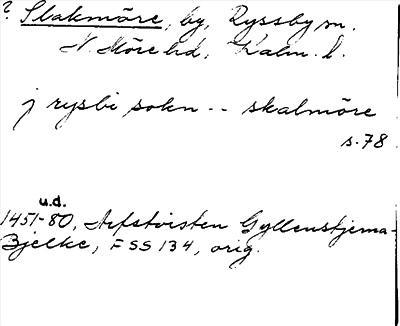 ? Slakmöre, by, Ryssby sn.
N. Möre hd, Kalm. l.
j rysbi sokn -- skalmöre
s. 78
u.d.
1451-80, Arfstvisten Gyllenstjerna-
Bjelke, FSS 134, orig.